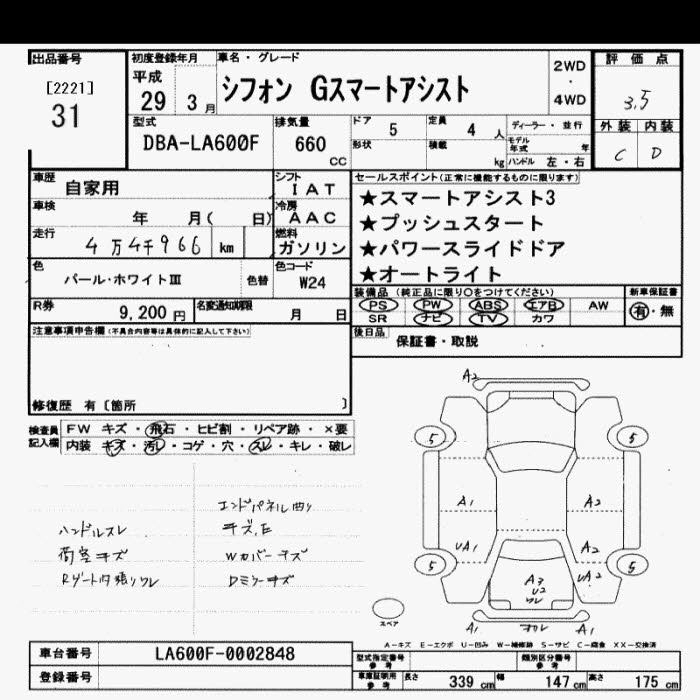 出品番号
[2221]
31
初度登録年月
平成
29 3 月
車名・グレード
シフォン Gスマートアシスト
2WD
・
4WD
評価点
3.5
外装 内装
C D
型式
DBA-LA600F
排気量
660
CC
ドア
5
定員
4 人
形状
積載
kg
ディーラー・並行
モデル年式 年
ハンドル 左・右
車歴
自家用
シフト
IAT
車検
年 月( 日)
冷房
AAC
走行
4万4千966 km
燃料
ガソリン
色
パール・ホワイトⅢ
色替
色コード
W24
R券
9,200 円
名変通知期限
月 日
セールスポイント(正常に機能するものに限ります)
★スマートアシスト3
★プッシュスタート
★パワースライドドア
★オートライト
装備品(純正品に限り○をつけてください)
PS PW ABS エアB AW
SR ナビ TV カワ
新車保証書
有・無
後日品
保証書・取説
注意事項申告欄(不具合内容等は具体的に記入して下さい)
修復歴 有〔箇所 〕
検査員記入欄
FW キズ・飛石・ヒビ割・リペア跡・×要
内装 キズ・汚レ・コゲ・穴・スレ・キレ・破レ
エンドパネル凹り
キズ,E
ハンドルスレ
荷室キズ
Wカバーキズ
Rゲート内張りワレ
Dミラーキズ
A2
5 5
A1 A2
UA1 A2
UA2
5 5
A3
U2
ワレ
A1 A1
スペア
A-キズ E-エクボ U-凹み W-補修跡 S-サビ C-腐食 XX-交換済
車台番号
LA600F-0002848
登録番号
型式指定番号
参考
類別区分番号
参考
車庫証明用
参考
長さ 339 cm 幅 147 cm 高さ 175 cm